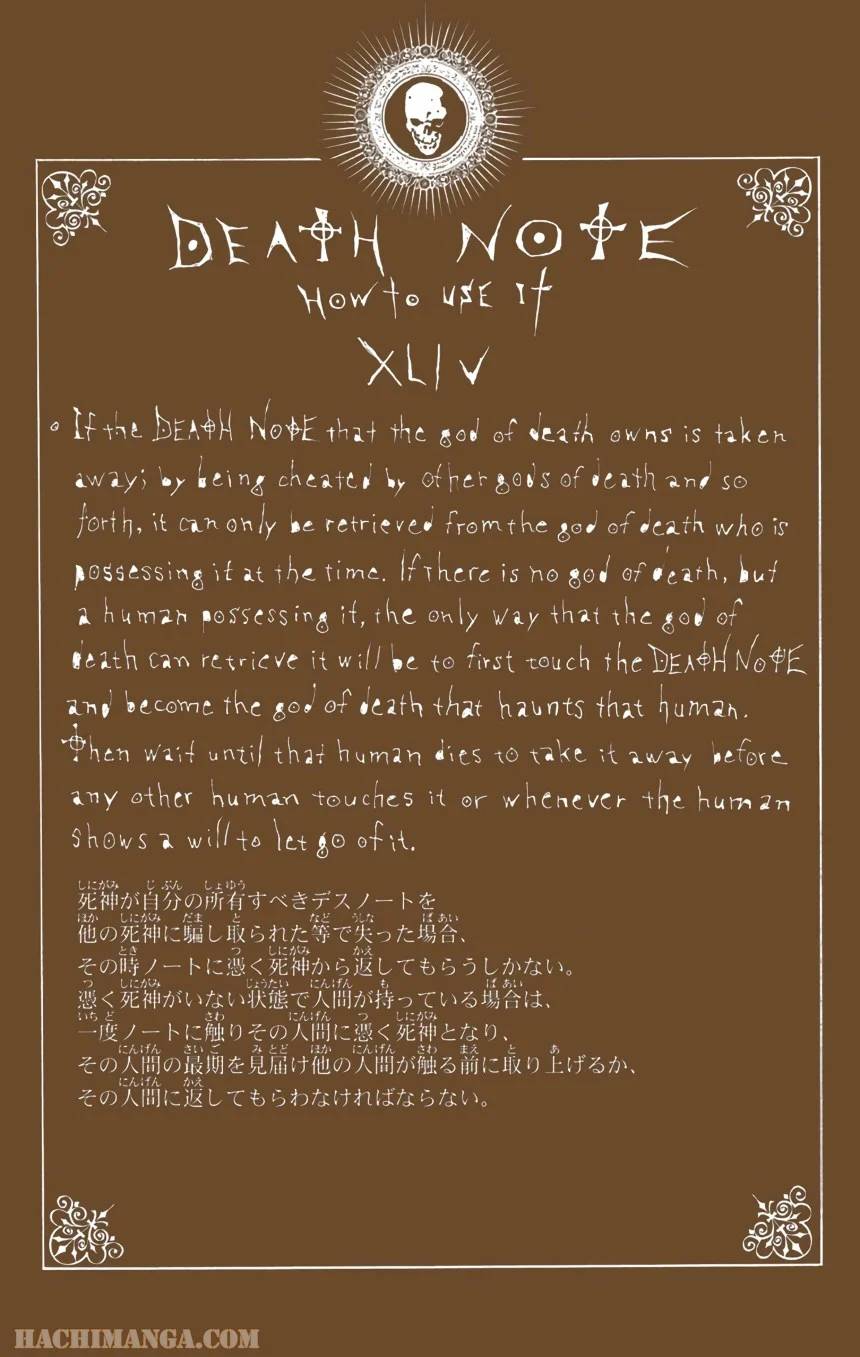 DEATH NOTE
HOW TO USE IT
XLIV
◦ If the DEATH NOTE that the god of death owns is taken
away; by being cheated by other gods of death and so
forth, it can only be retrieved from the god of death who is
possessing it at the time. If there is no god of death, but
a human possessing it, the only way that the god of
death can retrieve it will be to first touch the DEATH NOTE
and become the god of death that haunts that human.
Then wait until that human dies to take it away before
any other human touches it or whenever the human
shows a will to let go of it.
しにがみ じ ぶん しょゆう
死神が自分の所有すべきデスノートを
ほか しにがみ だま と など うしな ば あい
他の死神に騙し取られた等で失った場合、
とき つ しにがみ かえ
その時ノートに憑く死神から返してもらうしかない。
つ しにがみ じょうたい にんげん も ば あい
憑く死神がいない状態で人間が持っている場合は、
いち ど さわ にんげん つ しにがみ
一度ノートに触りその人間に憑く死神となり、
にんげん さい ご み とど ほか にんげん さわ まえ と あ
その人間の最期を見届け他の人間が触る前に取り上げるか、
にんげん かえ
その人間に返してもらわなければならない。
HACHIMANGA.COM